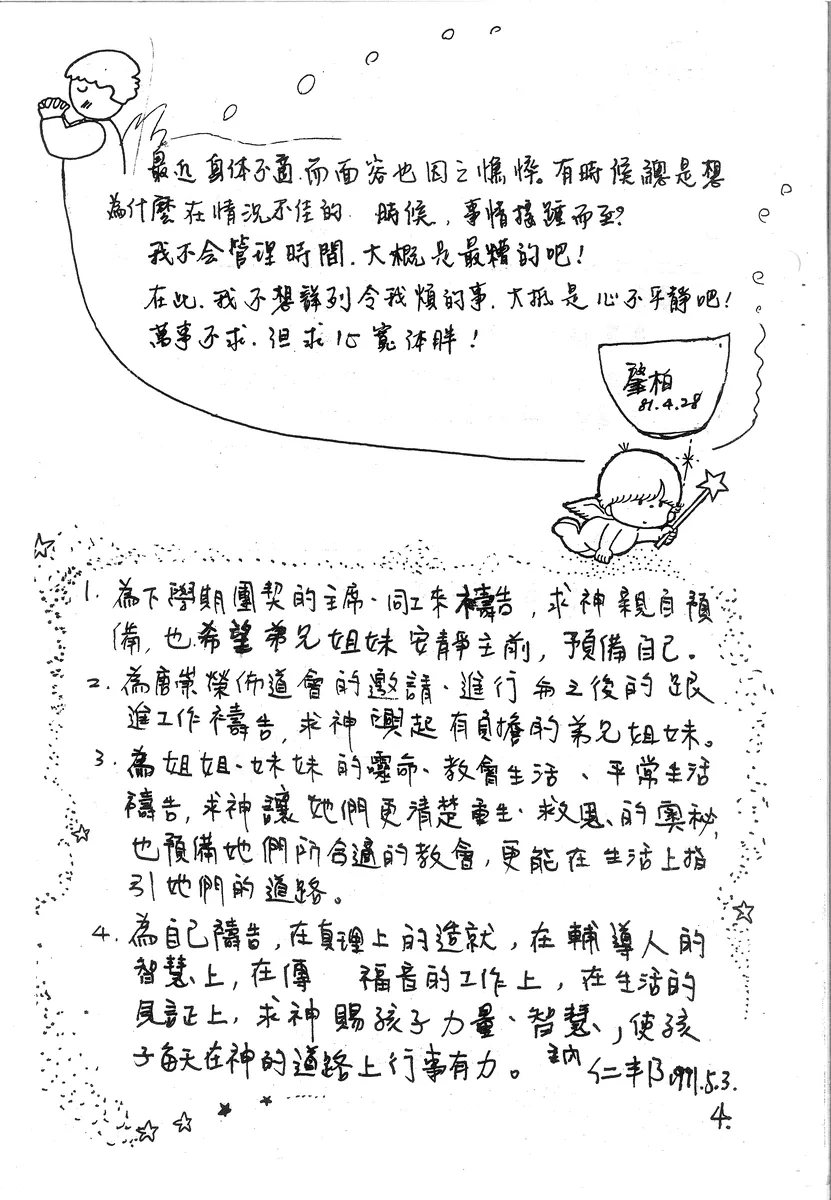 最近身体不適,而面容也因之憔悴。有時候總是想
為什麼在情況不佳的 時候,事情接踵而至?
我不会管理時間.大概是最糟的吧!
在此.我不想詳列令我煩的事.大抵是心不平静吧!
萬事不求.但求心寬体胖!
馨柏
81.4.28
1. 為下學期團契的主席、同工來禱告,求神親自預
備,也希望弟兄姐妹安靜主前,預備自己。
2. 為唐崇榮佈道會的邀請、進行與之後的跟
進工作禱告,求神興起有負擔的弟兄姐妹。
3. 為姐姐、妹妹的靈命、教會生活、平常生活
禱告,求神讓她們更清楚重生、救恩、的奧秘,
也預備她們所合適的教會,更能在生活上指
引她們的道路。
4. 為自己禱告,在真理上的造就,在輔導人的
智慧上,在傳 福音的工作上,在生活的
見証上,求神賜孩子力量、智慧、,使孩
子每天在神的道路上行事有力。主內
仁丰 1991.5.3.
4.